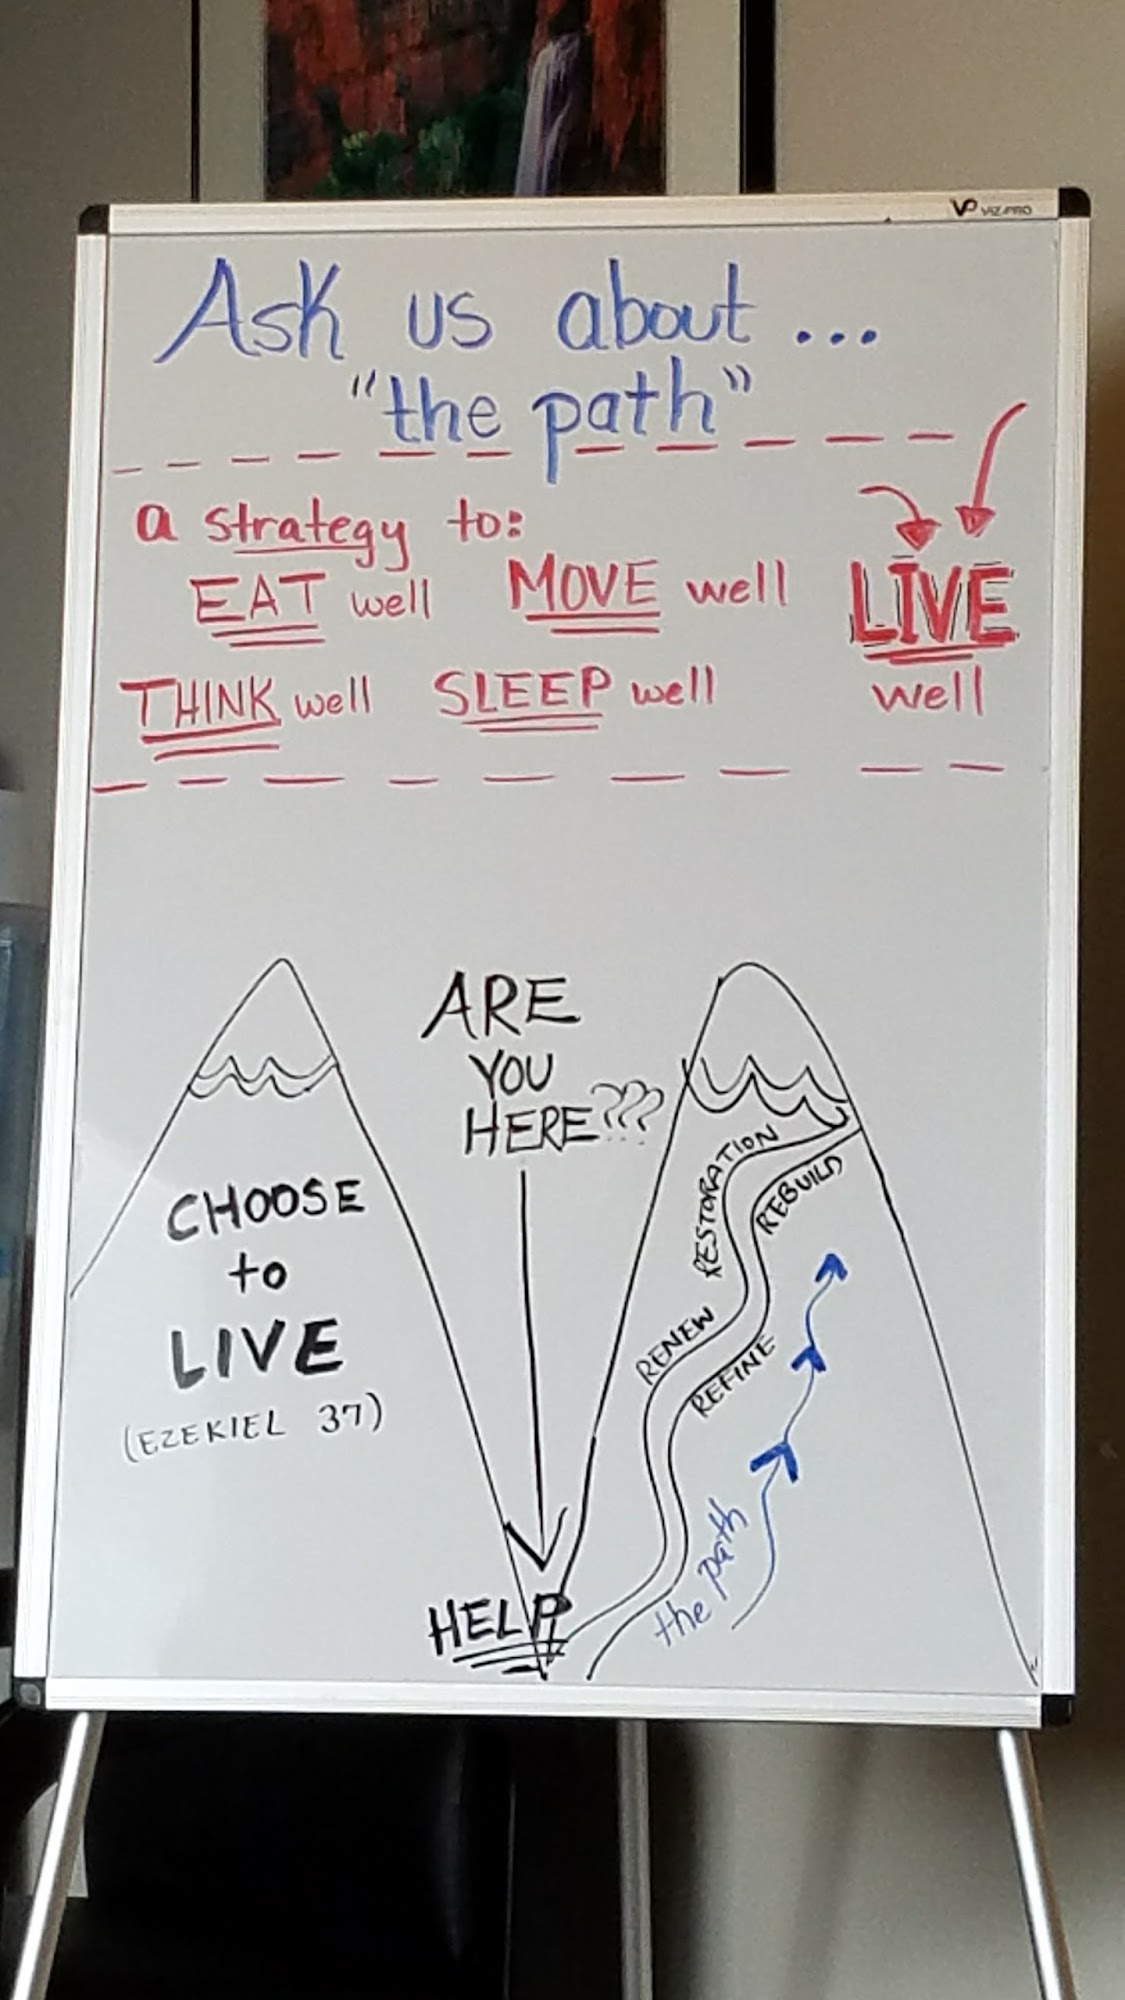 VP VIZ-PRO
Ask us about...
"the path"
a strategy to:
EAT well MOVE well LIVE
THINK well SLEEP well well
ARE
YOU
HERE???
CHOOSE
to
LIVE
(EZEKIEL 37)
RESTORATION
REBUILD
RENEW
REFINE
the path
HELP